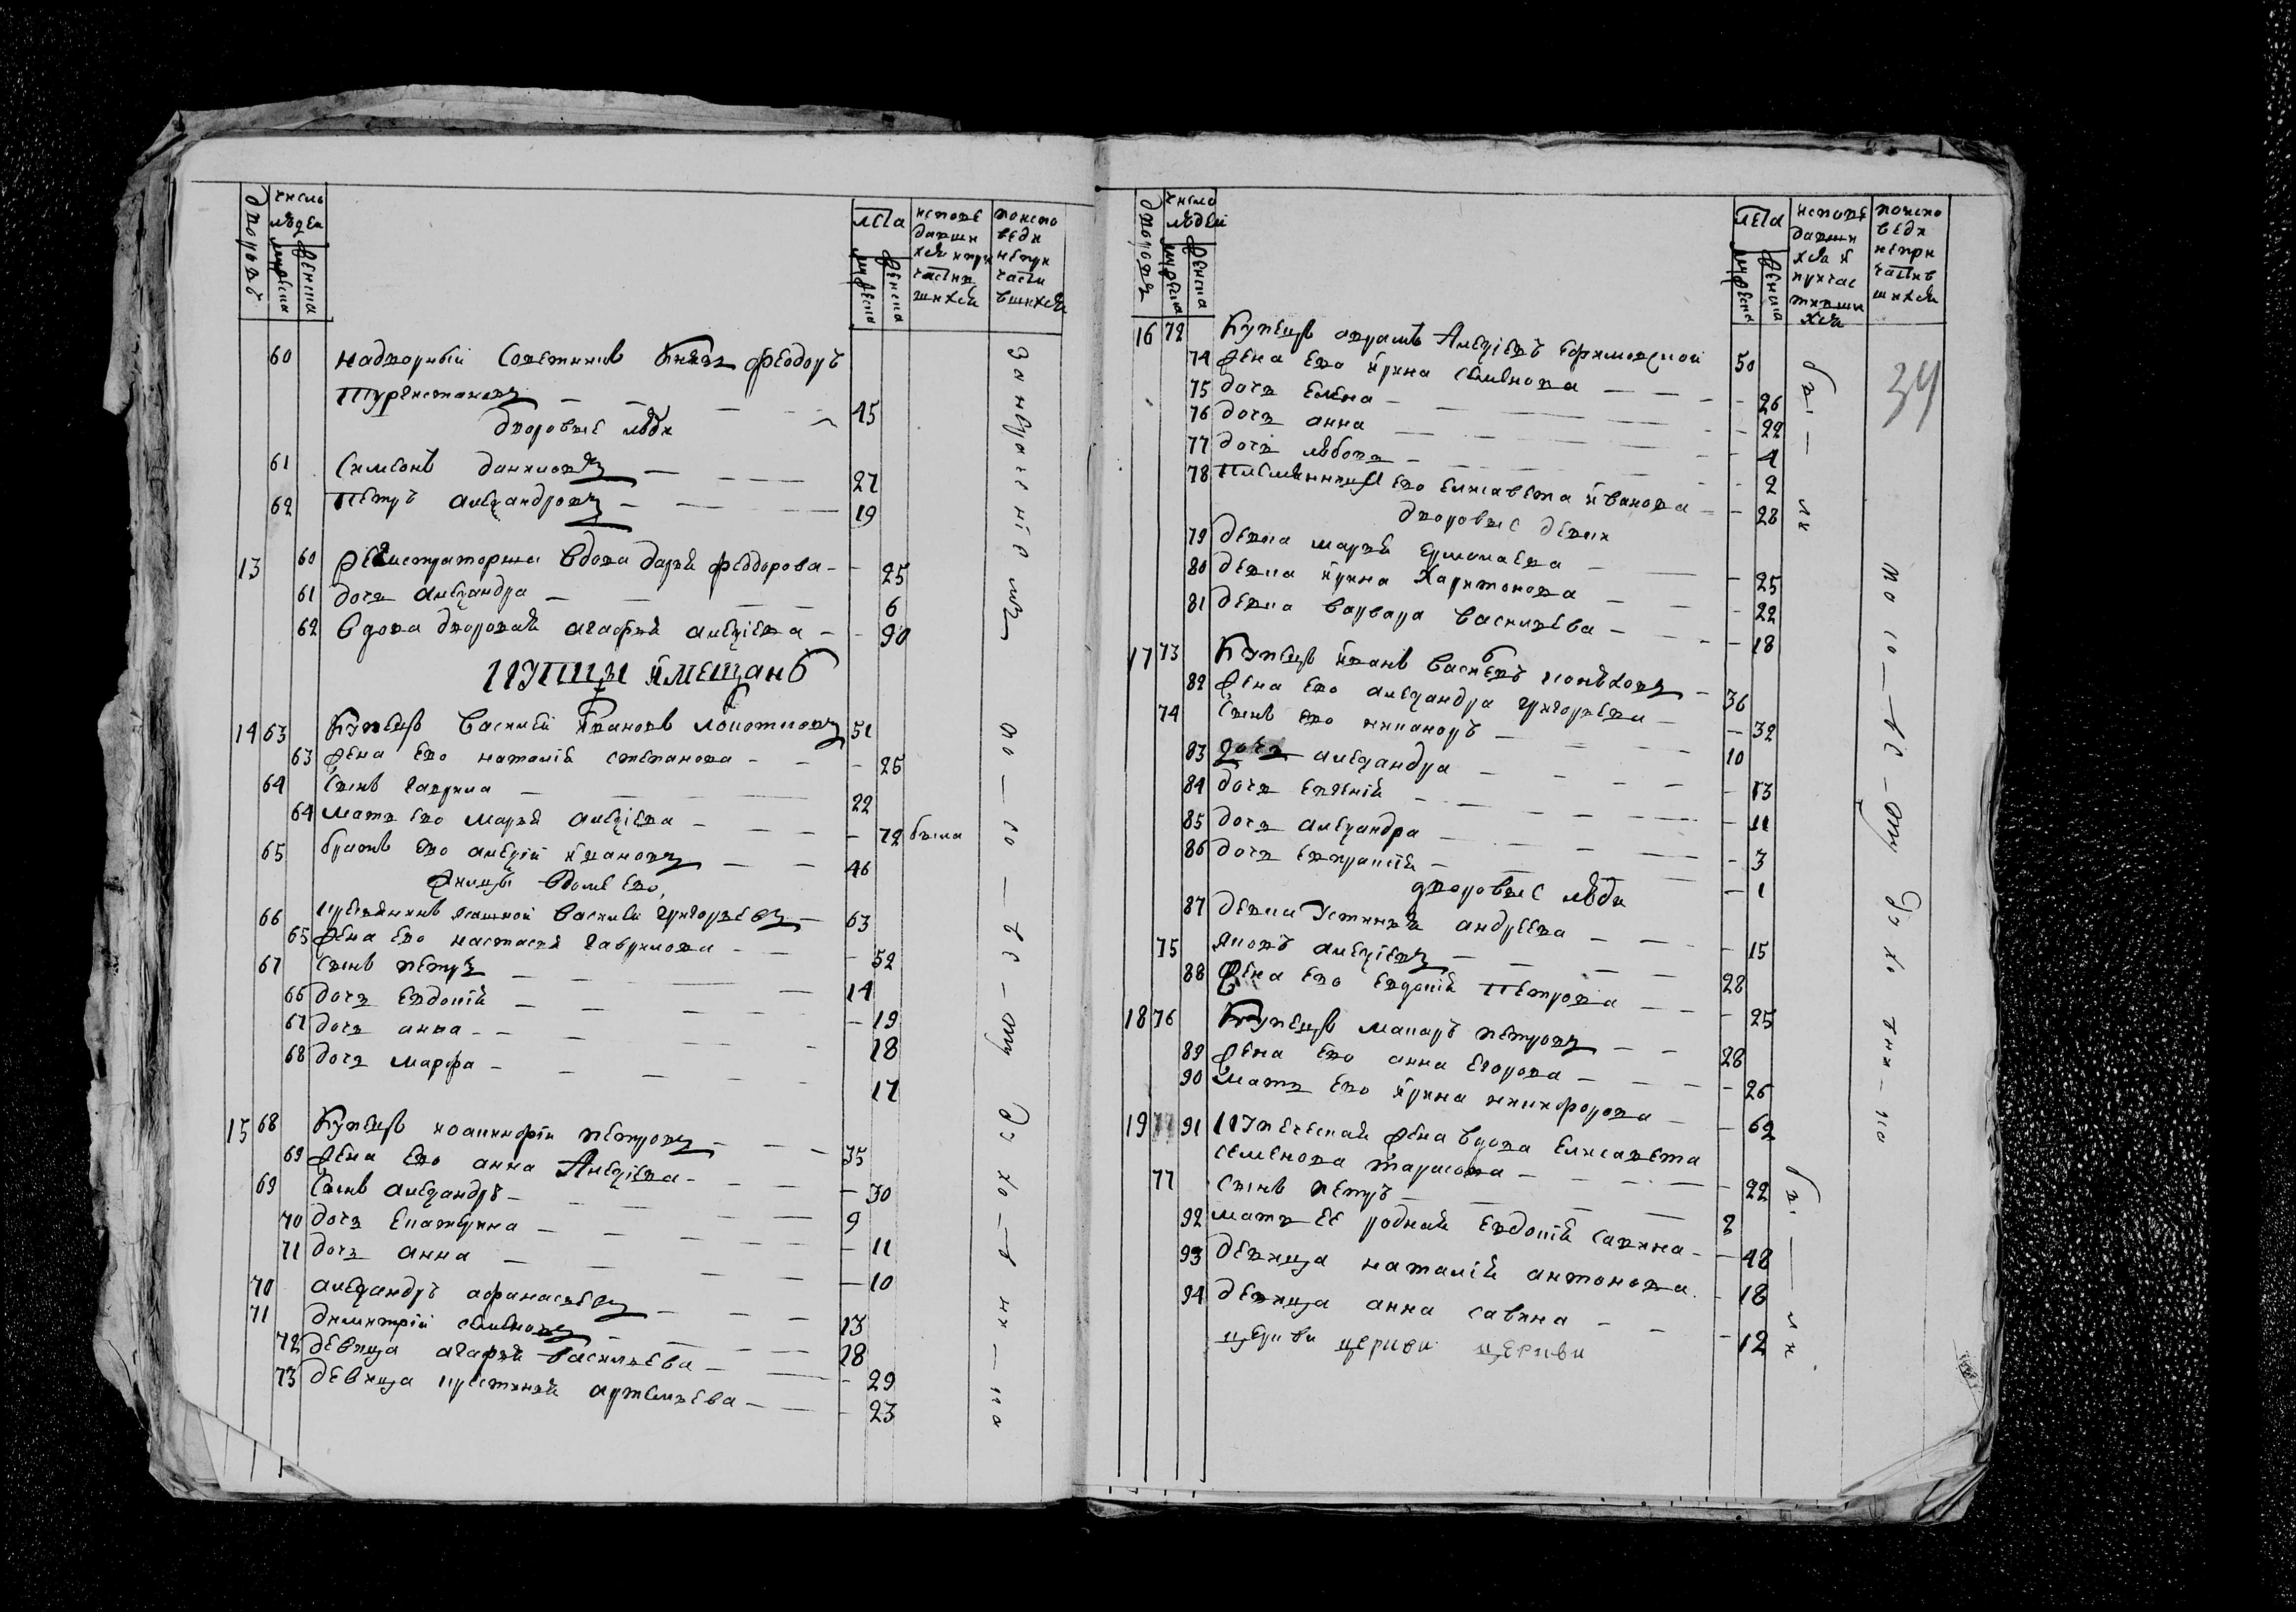 дворовъ
число людеи
мужеска
женска
лета
мужеска
женска
исповедавши хся и при частив шихся
по испо веди непри части вшихся
60 надворный советникъ князь феодоръ
туркистановъ 45
дворовые люди
61 симеонъ даниловъ 27
62 петръ алеѯандровъ 19
13 60 регистраторша вдова дарья феодорова 25
61 дочь алеѯандра 6
62 вдова дворовая агафья алеѯіева 90
купцы и мещанъ
14 63 купецъ василий ивановъ лопотковъ 51
63 жена ево наталія степанова 25
64 сынъ гаврила 22
64 мать ево марья алеѯіева 72 была
65 братъ ево алеѯій ивановъ 46
жилцы вдоме ево
66 василий григорьевъ 63
65 жена ево настасья гаврилова 52
67 сынъ петръ 14
66 дочь евдокія 19
67 дочь анна 18
68 дочь марфа 17
15 68 купецъ иоаникий петровъ 35
69 жена ево анна алеѯіева 30
69 сынъ алеѯандръ 9
70 дочь екатерина 11
71 дочь анна 10
70 алеѯандръ афанасьевъ 13
71 димитрій семеновъ 18
72 девица агафья васильева 29
73 девица кристинья артемьева 23
дворовъ
число людеи
мужеска
женска
лета
мужеска
женска
исповедавши хся и причас тивши хся
по испо веди непри частив шихся
34
16 72 купецъ авраамъ алеѯіевъ ефимовской 50
74 жена ево ирина семенова 26
75 дочь елена 22
76 дочь анна 4
77 дочь любовь 2
78 племянница ево елисавета иванова 28
дворовые девки
79 девка марья ермолаева 25
80 девка ирина харитонова 22
81 девка варвара васильева 18
17 73 купецъ иванъ васильевъ конюховъ 36
82 жена ево алеѯандра григорьева 32
74 сынъ ево никаноръ 10
83 дочь алеѯандра 13
84 дочь евгенія 11
85 дочь алеѯандра 3
86 дочь евпраѯія 1
дворовые люди
87 девка устинья андреева 15
75 яковъ алеѯіевъ 28
88 жена ево евдокія петрова 25
18 76 купецъ макаръ петровъ 28
89 жена ево анна егорова 26
90 мать ево ирина никифорова 62
19 77 91 купеческая жена вдова елисавета
семенова тарасова 22
77 сынъ петръ 8
92 мать ее родная евдокія савина 48
93 девица наталія антонова 18
94 девица анна савина 12
церкви церкви церкви